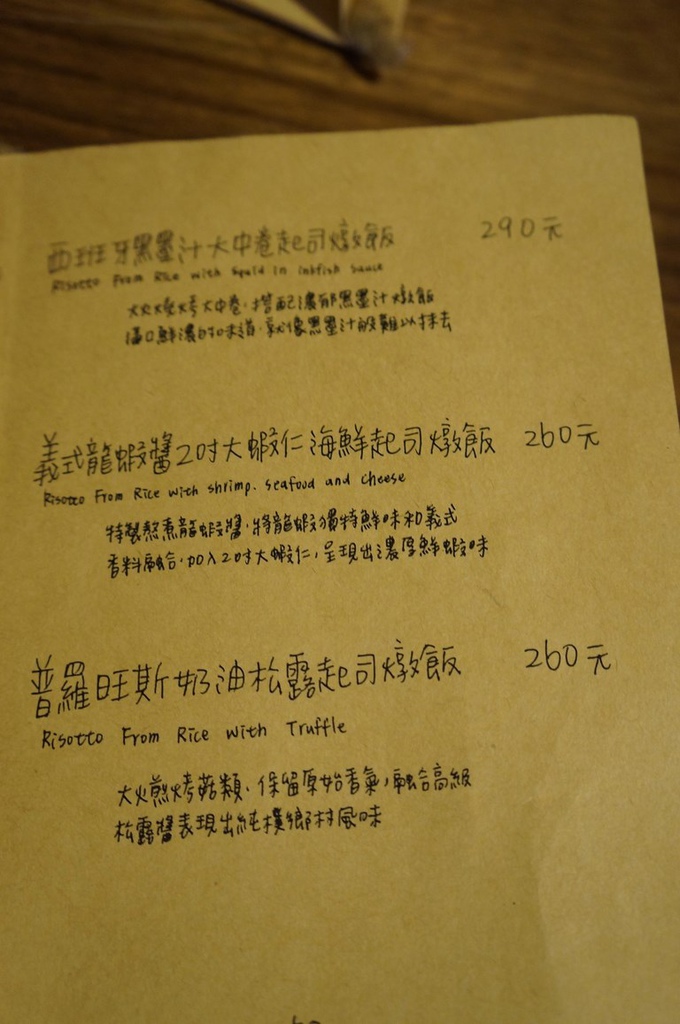 西班牙黑墨汁大中卷起司燉飯 290元
Risotto From Rice with Squid in inkfish sauce
大火燒烤大中卷,搭配濃郁黑墨汁燉飯
滿口鮮濃的味道,就像黑墨汁般難以抹去
義式龍蝦醬2吋大蝦仁海鮮起司燉飯 260元
Risotto From Rice with shrimp. seafood and cheese
特製熬煮龍蝦醬,將龍蝦獨特鮮味和義式
香料融合,加入2吋大蝦仁,呈現出濃厚鮮蝦味
普羅旺斯奶油松露起司燉飯 260元
Risotto From Rice with Truffle
大火煎烤菇類,保留原始香氣,融合高級
松露醬表現出純樸鄉村風味